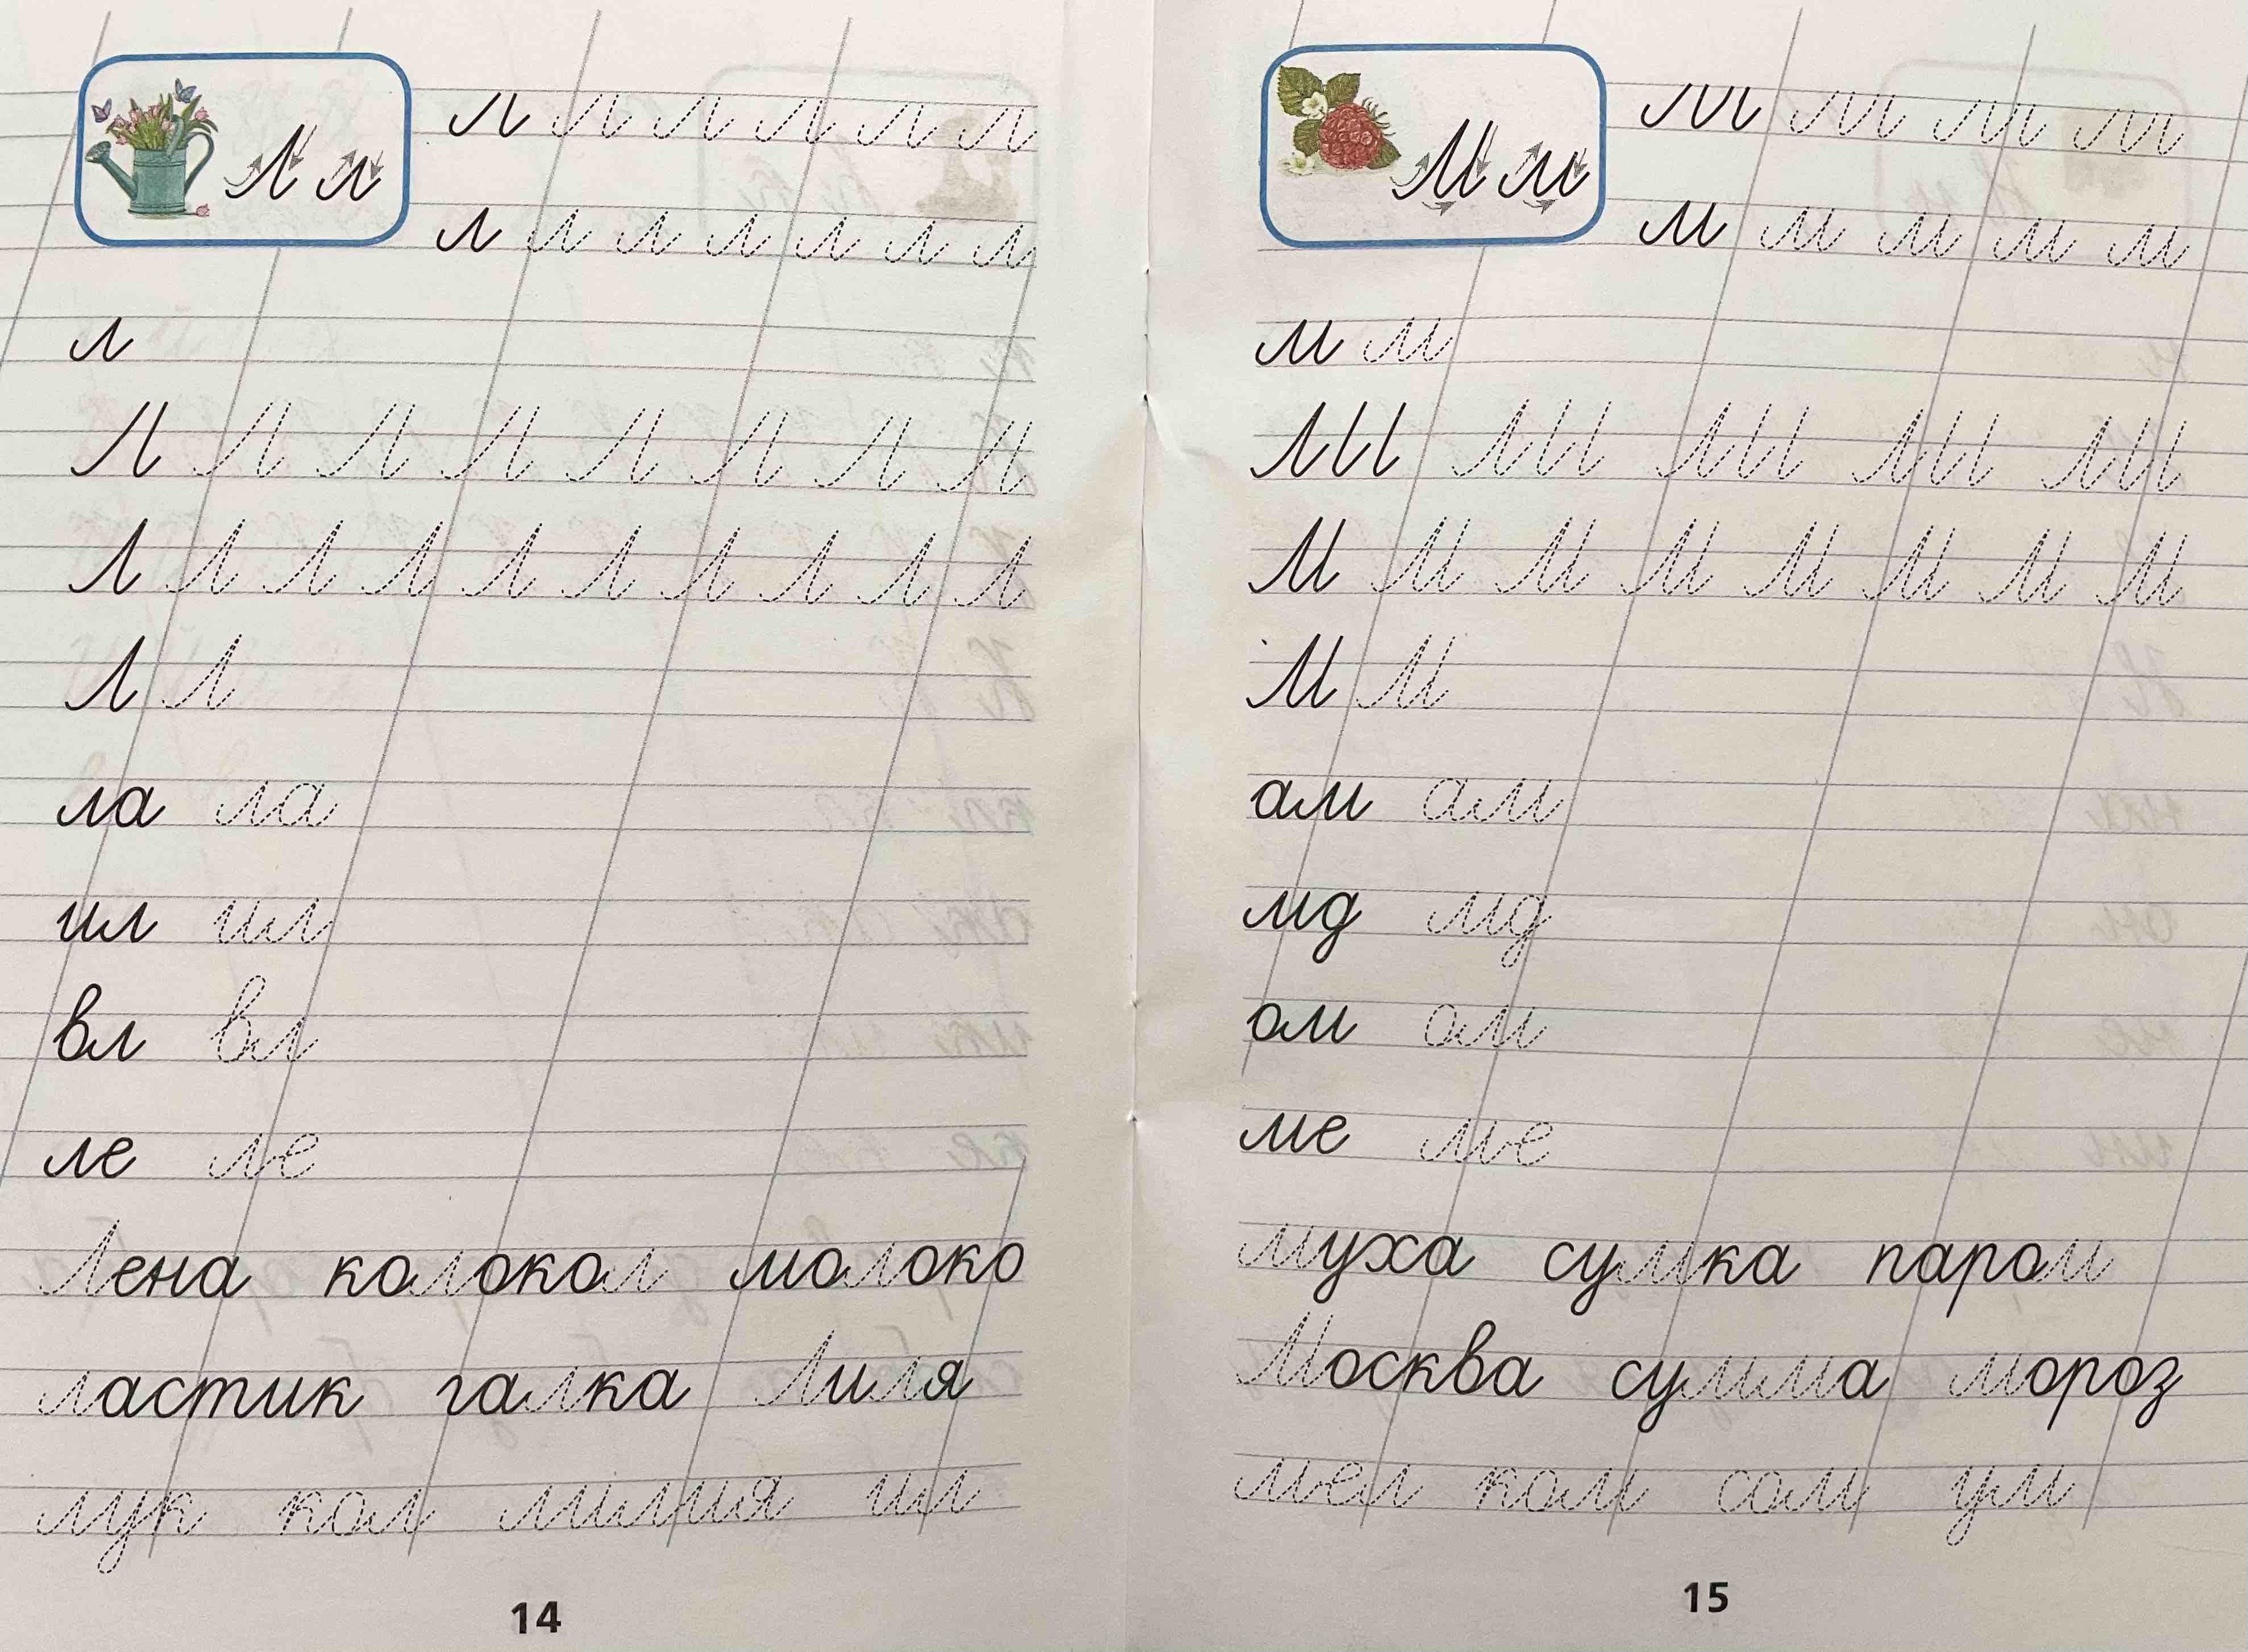 Л л
л л л л л л
л л л л л л л
л
Л Л Л Л Л Л Л Л
Л Л Л Л Л Л Л Л Л Л
Л Л
ла ла
ил ил
вл вл
ле ле
Лена колокол молоко
ластик галка Лиля
лук кол лилия ил
14
М м
м м м м
м м м м м
м м
М М М М М
М М М М М М М М
М М
ам ам
мд мд
ом ом
ме ме
муха сумка паром
Москва сумма мороз
мел ком сом ум
15